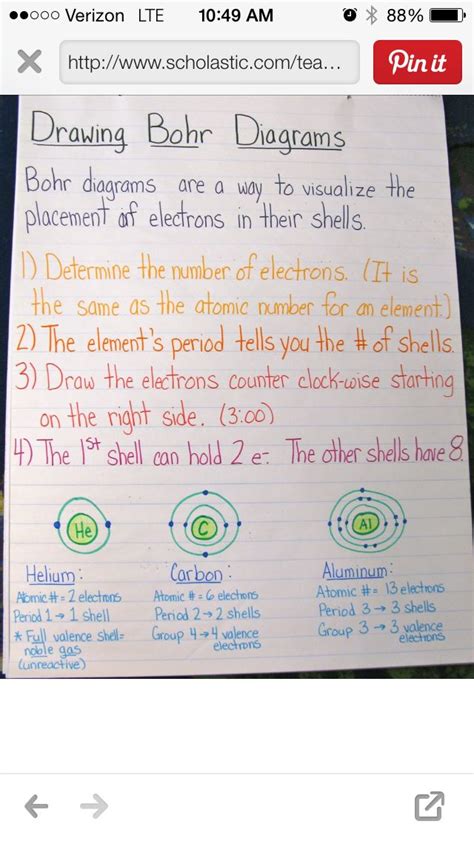 Verizon LTE 10:49 AM 88%
http://www.scholastic.com/tea... Pin it
Drawing Bohr Diagrams
Bohr diagrams are a way to visualize the
placement of electrons in their shells.
1) Determine the number of electrons. (It is
the same as the atomic number for an element.)
2) The element's period tells you the # of shells.
3) Draw the electrons counter clock-wise starting
on the right side. (3:00)
4) The 1st shell can hold 2 e-. The other shells have 8.
He
C
Al
Helium:
Atomic # = 2 electrons
Period 1 → 1 shell
* Full valence shell =
noble gas
(unreactive)
Carbon:
Atomic # = 6 electrons
Period 2 → 2 shells
Group 4 → 4 valence
electrons
Aluminum:
Atomic # = 13 electrons
Period 3 → 3 shells
Group 3 → 3 valence
electrons